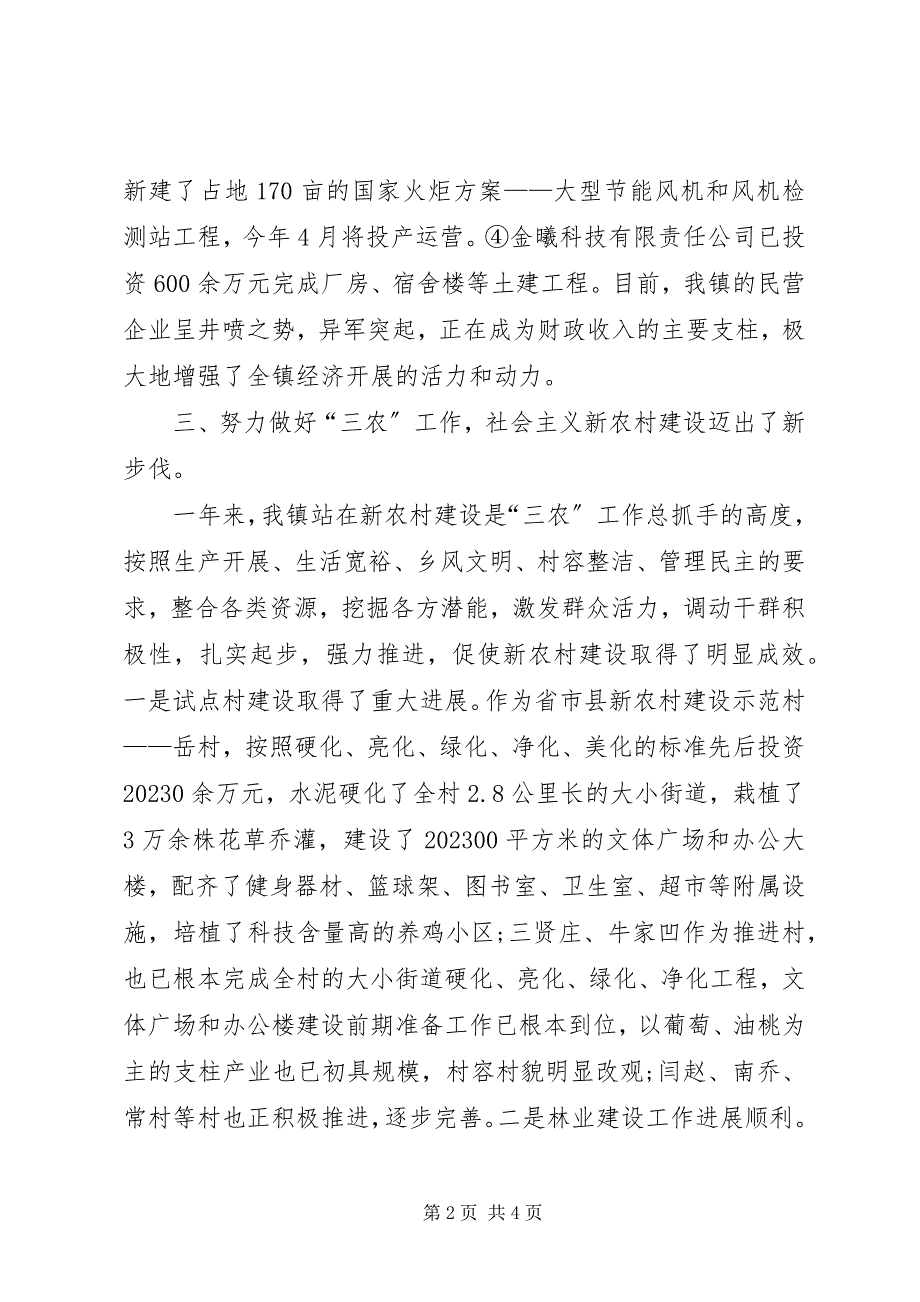 新建了占地 170 亩的国家火炬方案——大型节能风机和风机检
测站工程，今年 4 月将投产运营。④金曦科技有限责任公司已投
资 600 余万元完成厂房、宿舍楼等土建工程。目前，我镇的民营
企业呈井喷之势，异军突起，正在成为财政收入的主要支柱，极
大地增强了全镇经济开展的活力和动力。
三、努力做好“三农〞工作，社会主义新农村建设迈出了新
步伐。
一年来，我镇站在新农村建设是“三农〞工作总抓手的高度，
按照生产开展、生活宽裕、乡风文明、村容整洁、管理民主的要
求，整合各类资源，挖掘各方潜能，激发群众活力，调动干群积
极性，扎实起步，强力推进，促使新农村建设取得了明显成效。
一是试点村建设取得了重大进展。作为省市县新农村建设示范村
——岳村，按照硬化、亮化、绿化、净化、美化的标准先后投资
20230 余万元，水泥硬化了全村 2.8 公里长的大小街道，栽植了
3 万余株花草乔灌，建设了 202300 平方米的文体广场和办公大
楼，配齐了健身器材、篮球架、图书室、卫生室、超市等附属设
施，培植了科技含量高的养鸡小区;三贤庄、牛家凹作为推进村，
也已根本完成全村的大小街道硬化、亮化、绿化、净化工程，文
体广场和办公楼建设前期准备工作已根本到位，以葡萄、油桃为
主的支柱产业也已初具规模，村容村貌明显改观;闫赵、南乔、
常村等村也正积极推进，逐步完善。二是林业建设工作进展顺利。
第 2 页 共 4 页